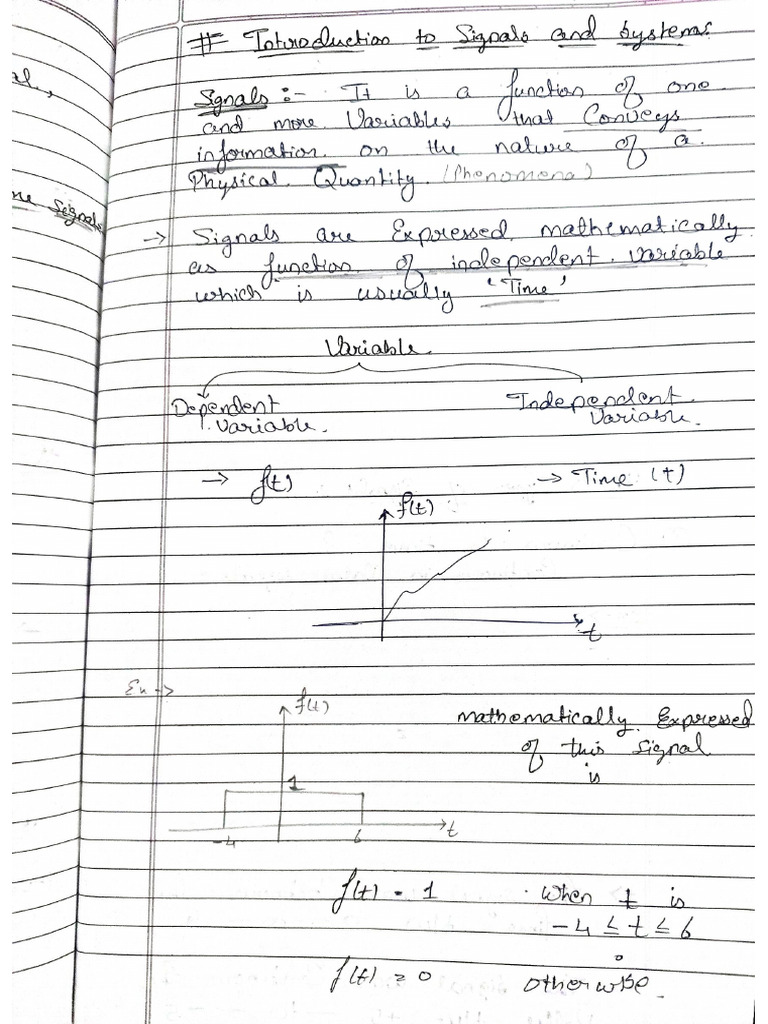 al.,
me Signals
# Introduction to Signals and Systems
Signals :- It is a function of one
and more Variables that Conveys
information on the nature of a
Physical Quantity (Phenomena)
→ Signals are Expressed mathematically
as function of independent variable
which is usually 'Time'
Variable
Dependent Independent
variable. Variable.
→ f(t) → Time (t)
f(t)
t
Ex →
f(t) mathematically Expressed
of this Signal
is
1
-4 6 t
f(t) = 1 when t is
-4 ≤ t ≤ 6
f(t) = 0 otherwise.